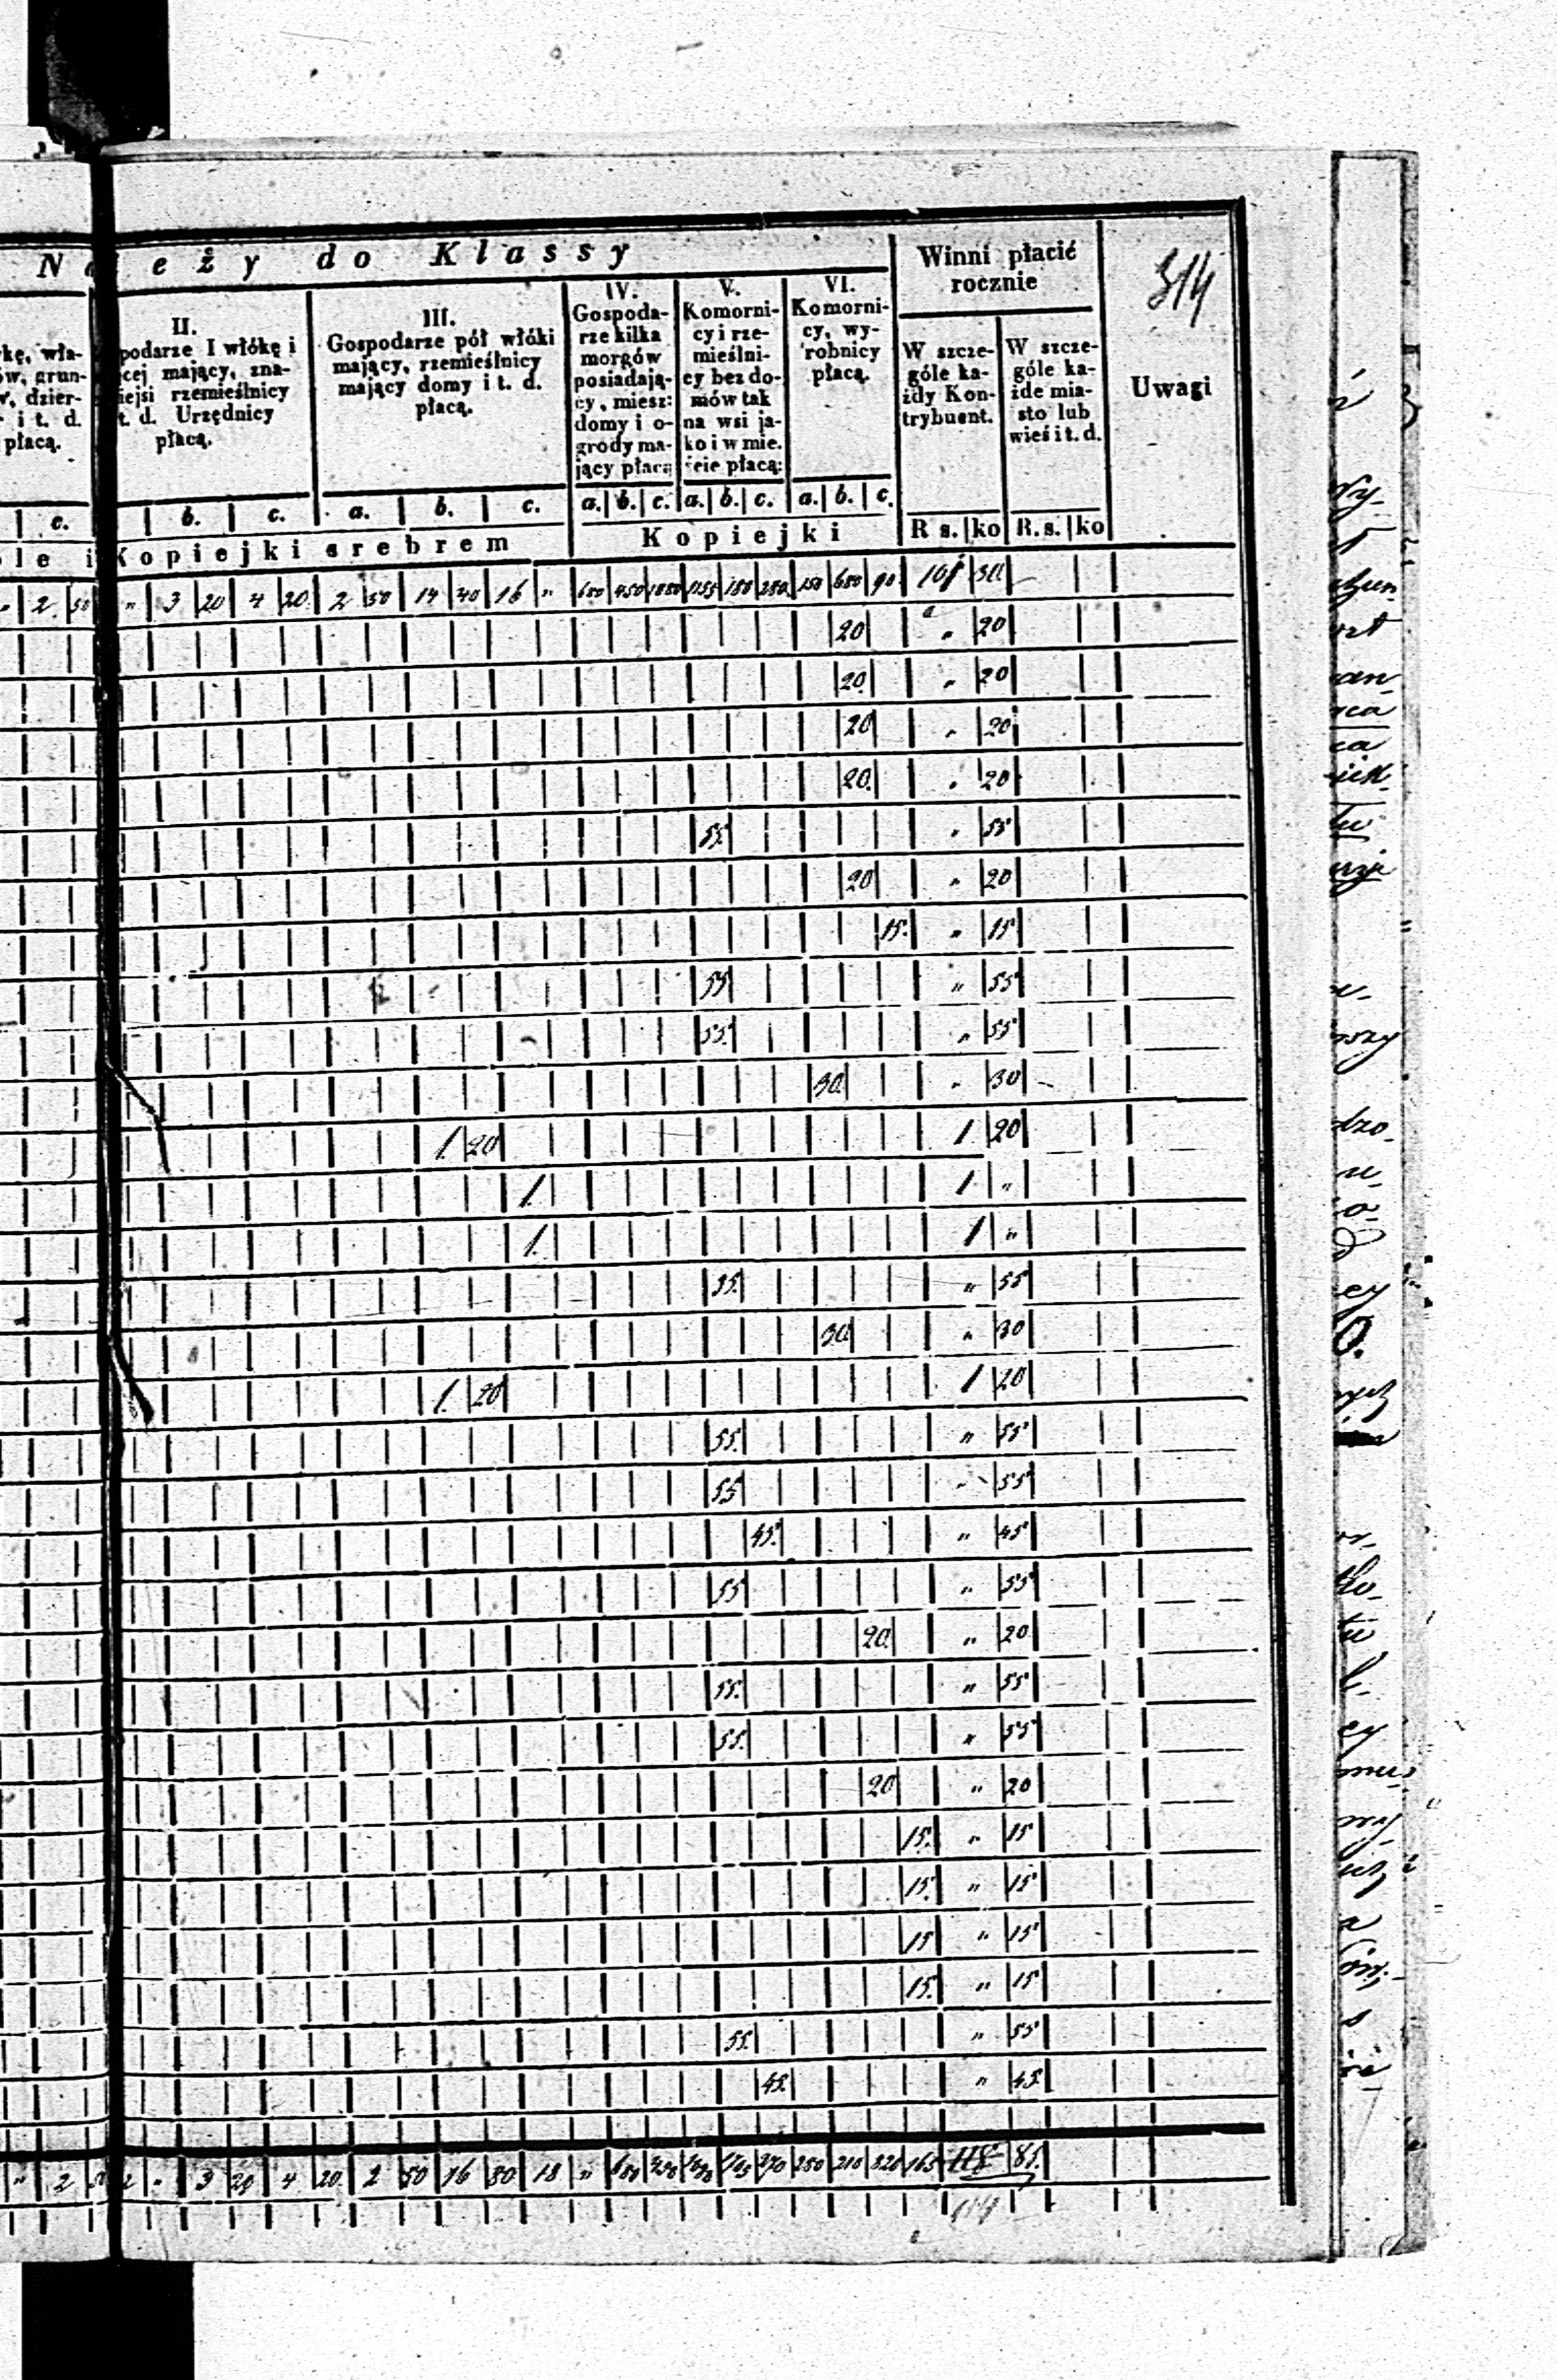 N eży do Klassy
Winni płacić
rocznie
314
Uwagi
kę, wła-
ów, grun-
dzier-
i t. d.
płacą.
II.
podarze I włókę i
cej mający, zna-
iejsi rzemieślnicy
t. d. Urzędnicy
płacą.
III.
Gospodarze pół włóki
mający, rzemieślnicy
mający domy i t. d.
płacą.
IV.
Gospoda-
rze kilka
morgów
posiadają-
cy, miesz:
domy i o-
grody ma-
jący płacą
V.
Komorni-
cy i rze-
mieślni-
cy bez do-
mów tak
na wsi ja-
ko i w mie.
ście płacą:
VI.
Komorni-
cy, wy-
robnicy
płacą.
W szcze-
góle ka-
żdy Kon-
trybuent.
W szcze-
góle ka-
żde mia-
sto lub
wieś i t. d.
c. b. c. a. b. c. a. b. c. a. b. c. a. b. c.
le i Kopiejki srebrem Kopiejki R s. ko R. s. ko
" 2 50 " 3 20 4 20 2 50 14 40 16 " 680 450 1155 180 280 150 680 90 101 30
20 " 20
20 " 20
20 " 20
20 " 20
55 " 55
20 " 20
15 " 15
55 " 55
55 " 55
30 " 30
1 20 1 20
1 1 "
1 1 "
55 " 55
30 " 30
1 20 1 20
55 " 55
55 " 55
45 " 45
55 " 55
20 " 20
55 " 55
55 " 55
20 " 20
15 " 15
15 " 15
15 " 15
15 " 15
55 " 55
45 " 45
" 2 " 3 20 4 20 2 50 16 80 18 " 680 270 250 210 820 165 118 85